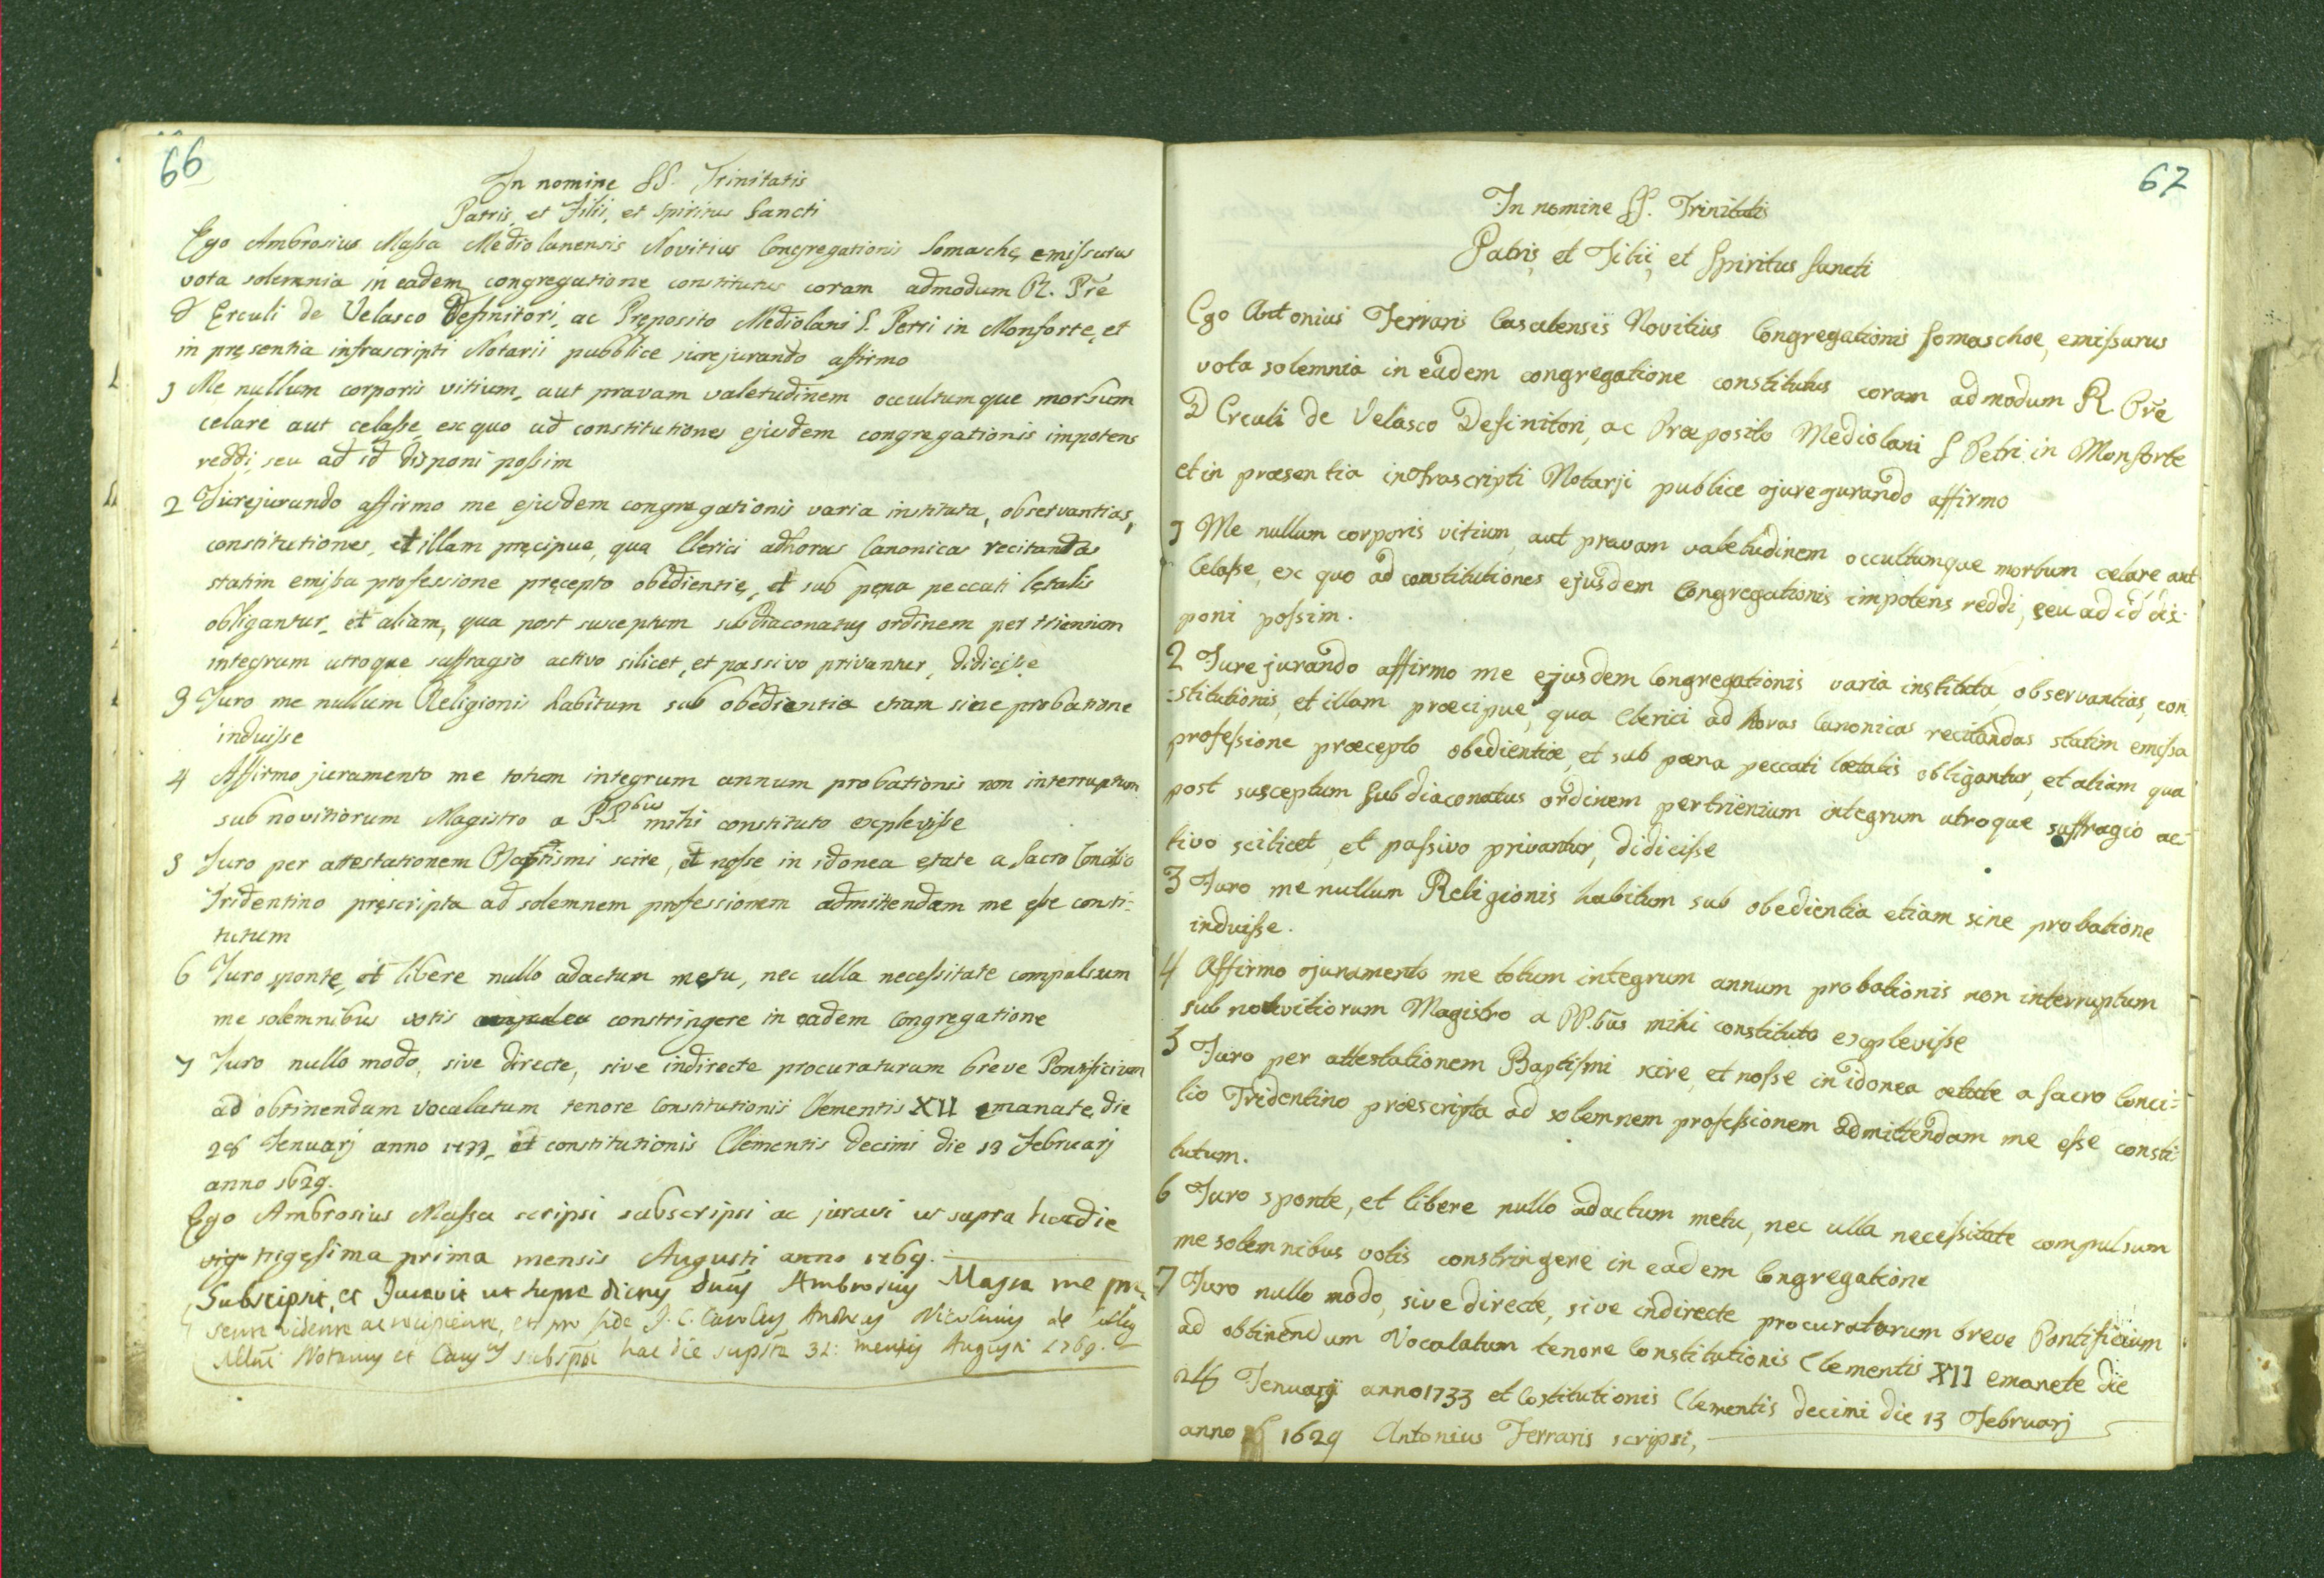 66
In nomine SS. Trinitatis
Patris, et Filii, et Spiritus Sancti
Ego Ambrosius Massa Mediolanensis Novitius Congregationis Somaschę emissurus
vota solemnia in eadem congregatione constitutus coram admodum R. Pre
D Erculi de Velasco Definitori, ac Pręposito Mediolani S. Petri in Monforte, et
in pręsentia infrascripti Notarii pubblice jurejurando affirmo
1 Me nullum corporis vitium, aut pravam valetudinem occultumque morbum
celare aut celasse ex quo ad constitutiones ejusdem congregationis impotens
reddi, seu ad id disponi possim
2 Jurejurando affirmo me ejusdem congregationis varia instituta, observantias,
constitutiones, et illam pręcipue, qua Clerici ad horas Canonicas recitandas
statim emissa professione pręcepto obedientię, et sub pęna peccati lętalis
obligantur, et aliam, qua post susceptum subdiaconatus ordinem per triennium
integrum utroque suffragio activo silicet, et passivo privantur, didicisse
3 Juro me nullum Religionis habitum sub obedientia etiam sine probatione
induisse
4 Affirmo juramento me totum integrum annum probationis non interruptum
sub novitiorum Magistro a PP.bus mihi constituto explevisse
5 Juro per attestationem Baptismi scire, et nosse in idonea ętate a sacro Concilio
Tridentino pręscripta ad solemnem professionem admittendam me esse consti-
tutum
6 Juro sponte, et libere nullo adactum metu, nec ulla necessitate compulsum
me solemnibus votis constringere in eadem Congregatione
7 Juro nullo modo, sive directe, sive indirecte procuraturum breve Pontificium
ad obtinendum vocalatum tenore Constitutionis Clementis XII emanate die
28 Jenuarj anno 1733, et constitutionis Clementis decimi die 13 Februarj
anno 1629.
Ego Ambrosius Massa scripsi subscripsi ac juravi ut supra hac die
trigesima prima mensis Augusti anno 1769.
Subscripsit, et Juravit ut supra dictus Ambrosius Massa me prę-
sente vidente ac recipiente, et pro fide J. C. Carolus Andreas Nicolinus de
Notarius et subscripsi hac die 31: mensis Augusti 1769.
67
In nomine SS. Trinitatis
Patris et Filii, et Spiritus Sancti
Ego Antonius Ferraris Casalensis Novitius Congregationis Somaschæ, emissurus
vota solemnia in eadem congregatione constitutus coram admodum R Pre
D Erculi de Velasco Definitori, ac Præposito Mediolani S Petri in Monforte
et in præsentia infrascripti Notarji publice juregurando affirmo
1 Me nullum corporis vitium, aut pravam valetudinem occultumque morbum celare aut
Celasse, ex quo ad constitutiones ejusdem Congregationis impotens reddi, seu ad id dis
poni possim.
2 Jure jurando affirmo me ejusdem Congregationis varia instituta, observantias, con
-stitutionis, et illam præcipue, qua Clerici ad horas Canonicas recitandas statim emissa
professione præcepto obedientiæ, et sub pæna peccati lætalis obligantur, et aliam qua
post susceptum Subdiaconatus ordinem per triennium integrum utroque suffragio ac-
tivo scilicet, et passivo privantur, didicisse
3 Juro me nullum Religionis habitum sub obedientia etiam sine probatione
induisse.
4 Affirmo juramento me totum integrum annum probationis non interruptum
sub novitiorum Magistro a PP.bus mihi constituto explevisse
5 Juro per attestationem Baptismi scire, et nosse in idonea ætate a sacro Conci-
lio Tridentino præscripta ad solemnem professionem admittendam me esse consti
tutum.
6 Juro sponte, et libere nullo adactum metu, nec ulla necessitate compulsum
me solemnibus votis constringere in eadem Congregatione
7 Juro nullo modo, sive directe, sive indirecte procuratorum breve Pontificium
ad obtinendum Vocalatum tenore Constitutionis Clementis XII emanete die
Jenuarj anno 1733 et Costitutionis Clementis decimi die 13 Februarj
anno 1629 Antonius Ferraris scripsi,